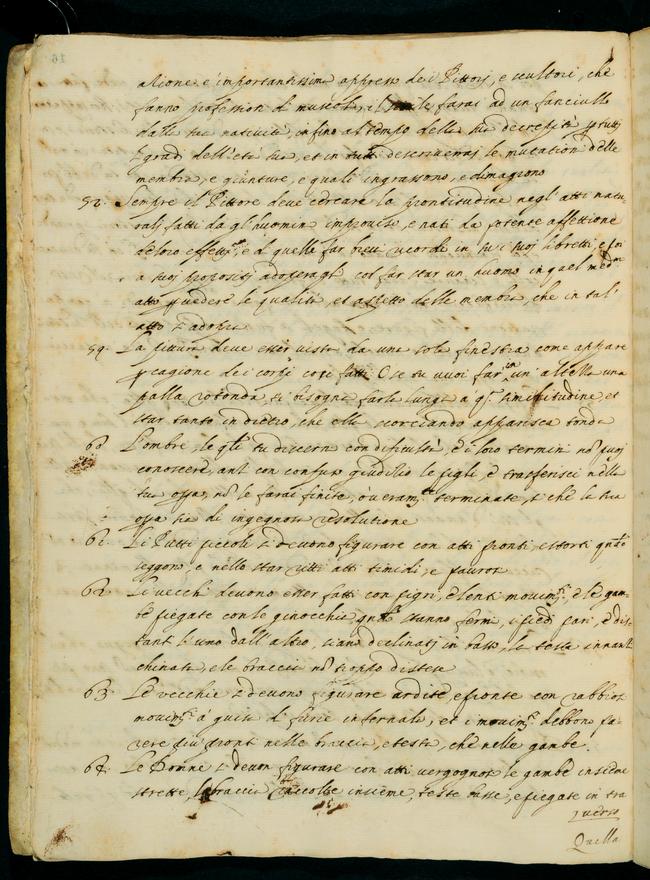 atione è importantissima appresso dei Pittorj, e scultori, che
fanno profession di muscoli, il farai ad un fanciullo
dalla sua natività, infino al tempo della sua decrepità p tutti
i gradi dell'età sua, et in tutti descriveraj le mutation delle
membra, e giunture, e quali ingrassono, e dimagrono
Sempre il Pittore deve cercare la prontitudine negl'atti natu
ralj fatti da gl'huomini improuiso, e nati da potente affettione
de loro effetti, e di quelli far brieui ricordi in su i tuoj libretti, e poi
a tuoj propositj adoperagli col far star un huomo in quel med.mo
atto p uedere le qualità, et aspetto delle membra, che in tal'
atto s'adopra
59. La pittura deve esser vista da una sola finestra come appare
p cagione de i corpi così fatti. O se tu vuoi far in un'altezza una
palla rotonda, ti bisogna farla lunga a similitudine, et
star tanto indietro, che ella scorciando apparisca tonda
60 L'ombre, le qli tu discerni con dificultà, e i loro termini nõ puoj
conoscere, anzi con confuso giuditio le pigli, e trasferisci nella
tua opa, nõ le farai finite, ò ueram.te terminate, che la tua
opa sia di ingegnosa resolutione
61. Li Putti piccoli si deuono figurare con atti pronti, e storti qñdo
seggono, e nello star ritti atti timidi, e paurosi
62. Li vecchi deuono esser fatti con pigri, e lenti mouim.ti, e le gam
be piegate con le ginocchia qñdo stanno fermi, i piedi pari, e dis
tanti l'uno dall'altro, siano declinatj in basso, la testa innanzi
chinata, e le braccia nõ troppo distese
63. Le vecchie si deuono figurare ardite, e pronte con rabbiosi
mouim.ti à guisa di furie infernali, et i mouim.ti debbono pa
rere più pronti nelle braccia, e testa, che nelle gambe.
64. Le Donne si deuon figurare con atti vergognosi le gambe insieme
strette, le braccia raccolte insieme, teste basse, e piegate in tra
uerso
Quella